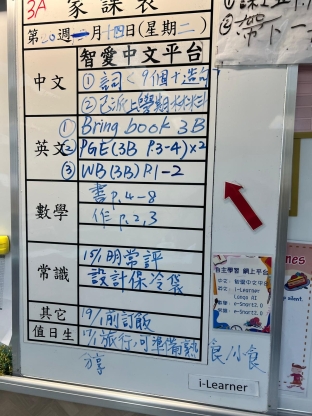 3A 家課表
第二十週 二月十四日(星期二)
智愛中文平台
中文
①詞〈9個+造句
②已派上學期
英文
① Bring book 3B
② PGE(3B P.3-4)×2
③ WB(3B)P.1-2
數學
書P.4-8
作P.2,3
常識
15/1明常評
設計保冷袋
其它
19/1前訂飯
值日生
17/1旅行,可準備熟食/小食
分享
自主學習 網上平台
中文: 智愛中文平台
英文: i-Learner
數學: e-Smart2.0
常識: e-Smart2.0
i-Learner